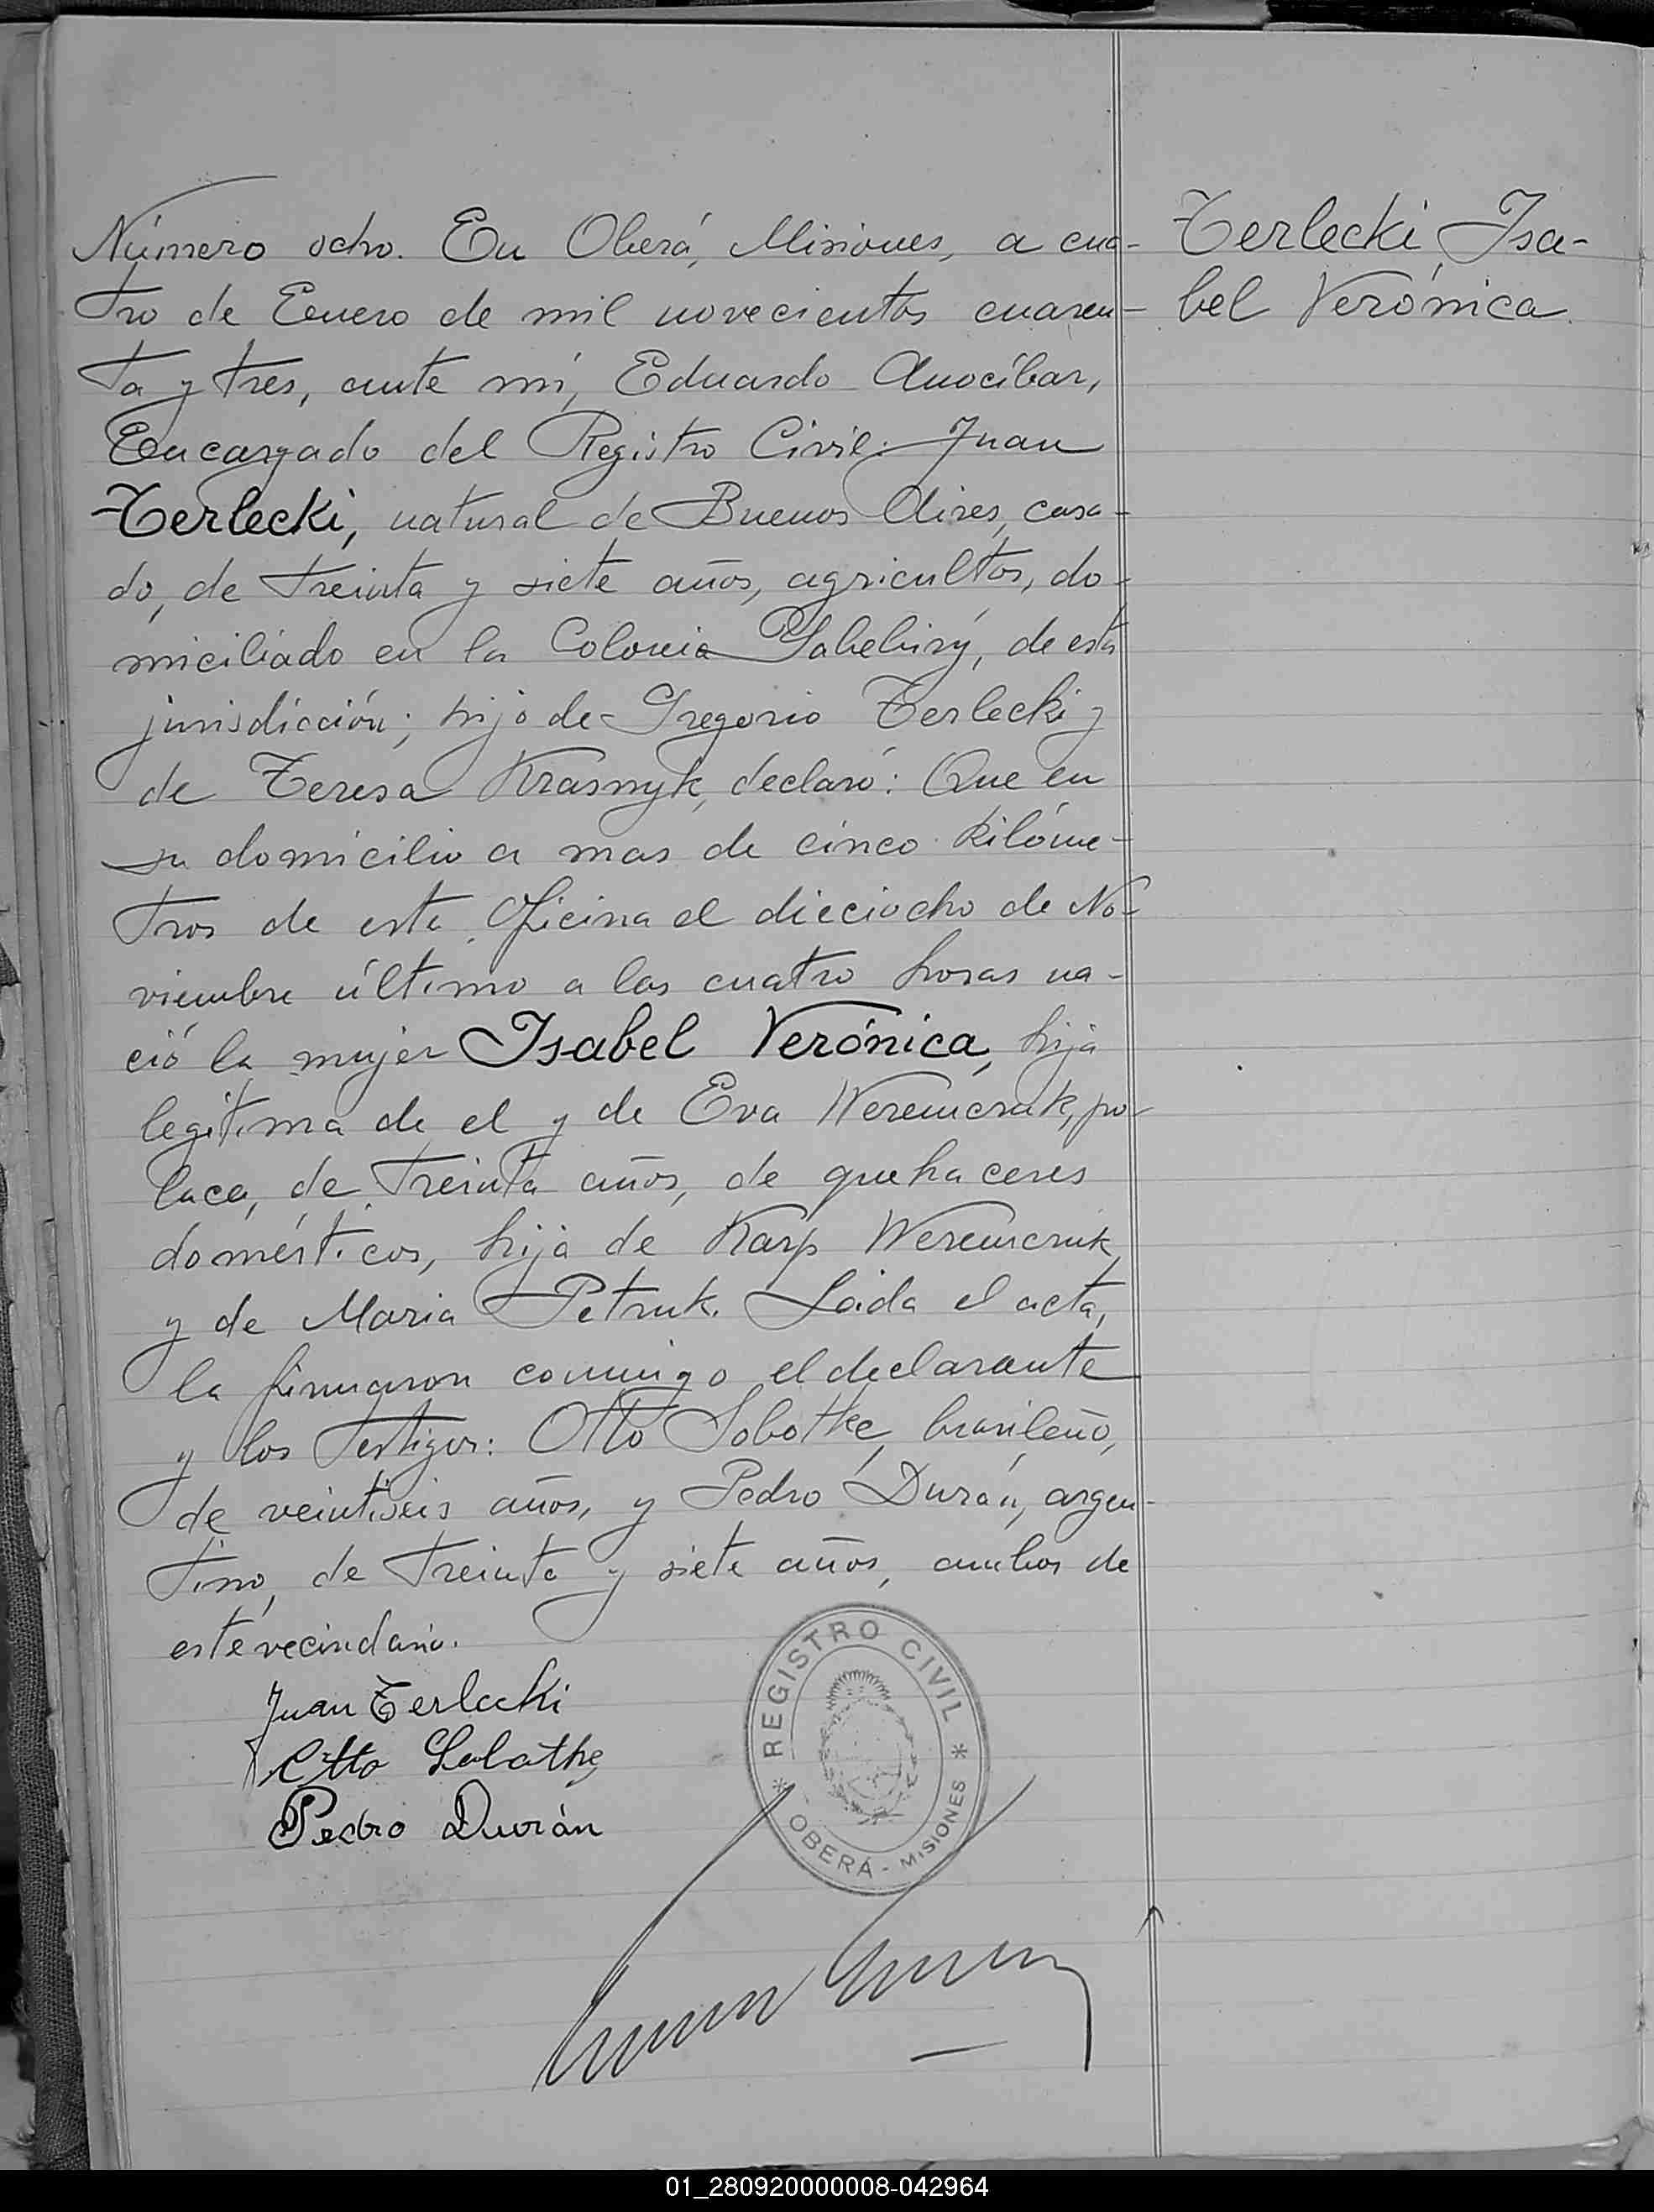 Número ocho. En Oberá, Misiones, a cua-
tro de Enero de mil novecientos cuaren-
ta y tres, ante mí, Eduardo Anocíbar,
Encargado del Registro Civil: Juan
Terlecki, natural de Buenos Aires, casa-
do, de treinta y siete años, agricultor, do-
miciliado en la Colonia Yabebiry, de esta
jurisdicción; hijo de Gregorio Terlecki y
de Teresa Krasnyk, declaró: Que en
su domicilio a mas de cinco kilóme-
tros de esta Oficina el dieciocho de No-
viembre último a las cuatro horas na-
ció la mujer Isabel Verónica, hija
legítima de el y de Eva Weremczuk, po-
laca, de treinta años, de quehaceres
domésticos, hija de Karp Weremczuk
y de Maria Petruk. Leida el acta,
la firmaron conmigo el declarante
y los testigos: Otto Sobothe, brasileño,
de veintiseis años, y Pedro Durán, argen-
tino, de treinta y siete años, ambos de
este vecindario.
Terlecki Isa-
bel Verónica.
Juan Terlecki
Otto Sobothe
Pedro Durán
* REGISTRO CIVIL *
OBERÁ - MISIONES
01_280920000008-042964